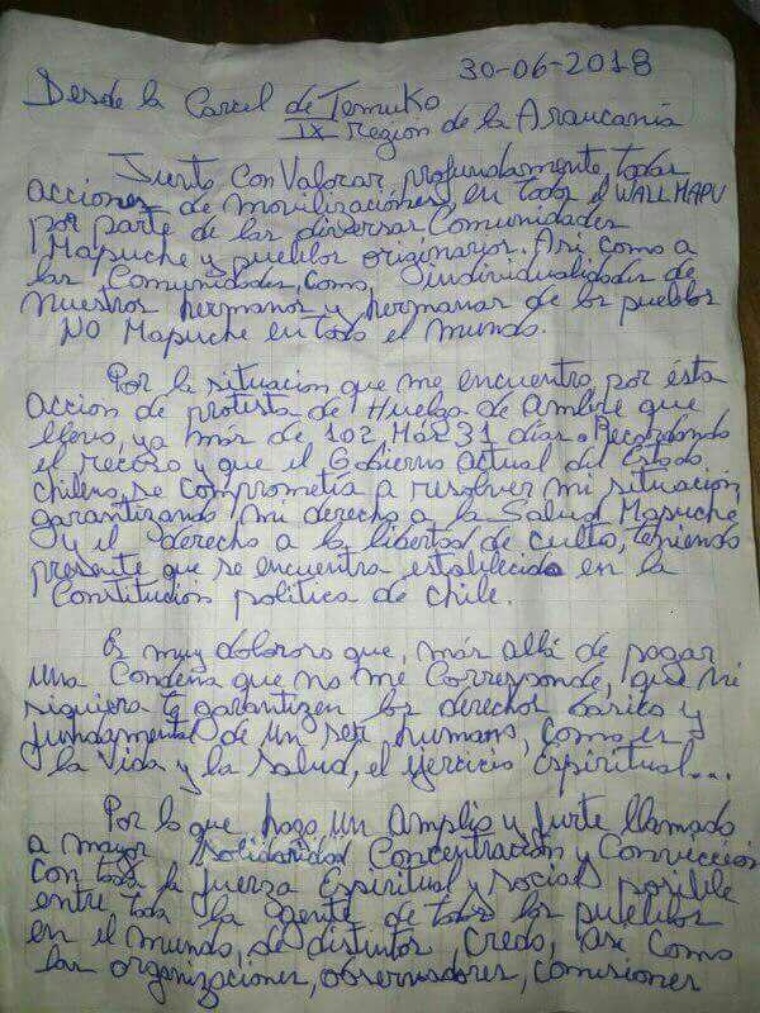 30-06-2018
Desde la Carcel de Temuko
IX Región de la Araucanía
Junto Con Valorar profundamente todas
acciones de movilizaciones, en todo el WALLMAPU
por parte de las diversas Comunidades
Mapuche y pueblos originarios. Asi como a
las Comunidades, como, individualidades de
nuestros hermanos y hermanas de los pueblos
NO Mapuche en todo el mundo.
Por la situacion que me encuentro por ésta
acción de protesta de Huelga de ambre que
llevo, ya más de 102, Más 31 días. Recordando
el receso y que el Gobierno actual del Estado
chileno, se comprometía a resolver mi situación,
garantizando mi derecho a la Salud Mapuche
y el derecho a la libertad de culto, teniendo
presente que se encuentra establecido en la
Constitución política de Chile.
Es muy doloroso que, más allá de pagar
una Condena que no me Corresponde, que ni
siquiera te garantizen los derechos basico y
fundamental de un ser humano, como es
la Vida y la salud, el ejercicio Espiritual...
Por lo que hago un amplio y furte llamado
a mayor solidaridad Concentración y Convicción
con toda la fuerza Espiritual y social posible
entre toda la gente de todos los puleblos
en el mundo, de distintos, Credo, asi como
las organizaciones, observadores, comisiones